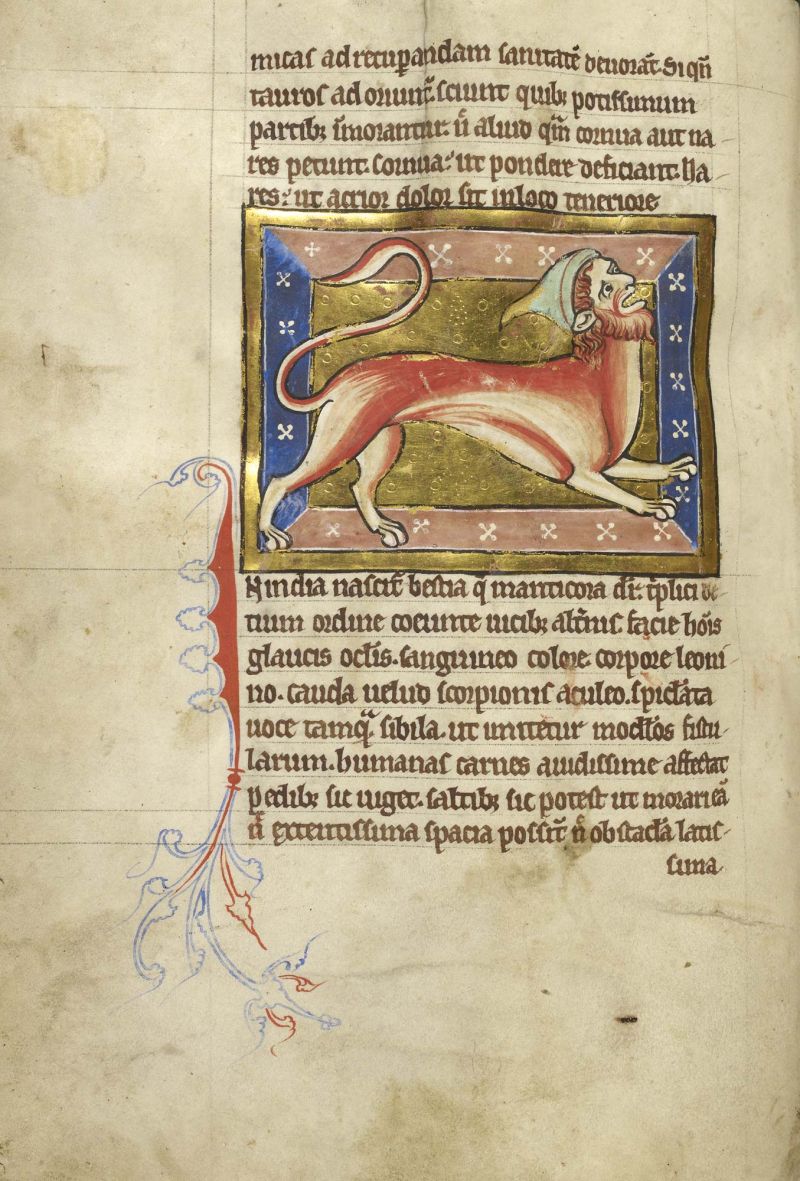 micas ad recup̱andam sanitatē deuorāt. Si qn̄
tauros adoriunt᷑. sciunt quibꝫ potissimum
partibꝫ īmorantur. n̄ aliud qm̄ cornua aut na
res petunt. Cornua: ut pondere deficiant. Na
res: ut acrior dolor sit in loco teneriore.
IN india nascit᷑ bestia q̄ manticora dr̄. tͥplici de
tium ordine coeunte uicibꝫ alt̄nis. facie hoīs
glaucis oclīs. sanguineo colore. corpore leoni
no. cauda uelud scorpionis aculeo. spiclāta
uoce tamqͣ sibila. ut imitetur modlōs fistu
larum. humanas carnes auidissime affectat
p̱edibꝫ sic uiget. saltibꝫ sic potest ut morari eā
n̄ extentissima spacia possīt. n̄ obstacla latis
sima.